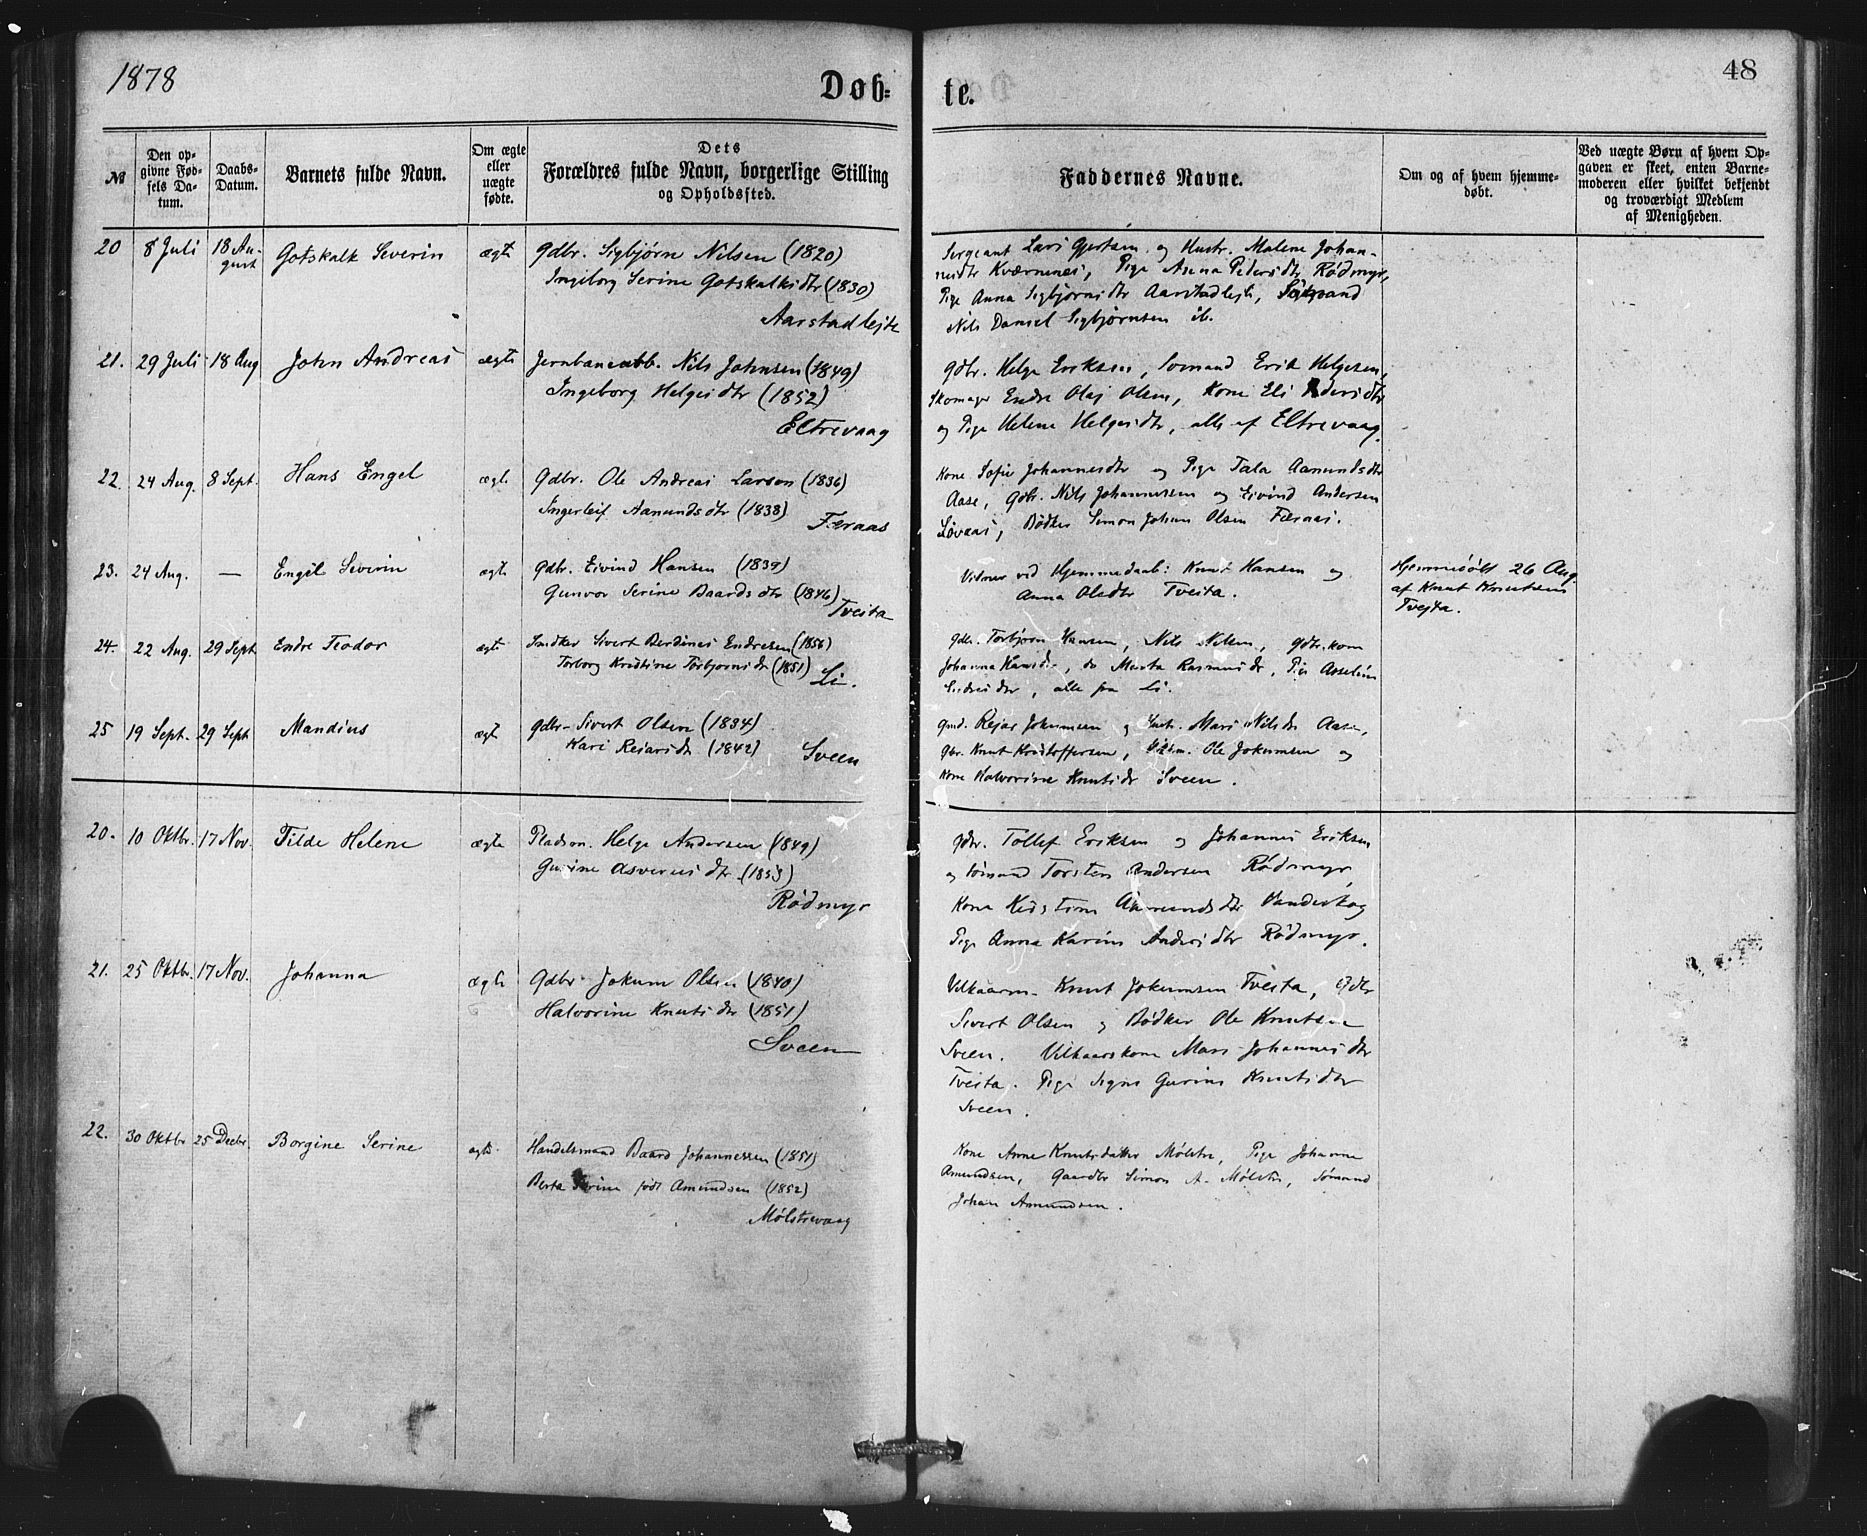 1878
Dob=
te.
48
№
Den op-
givne Fød-
sels Da-
tum.
Daabs-
Datum.
Barnets fulde Navn.
Om ægte
eller
uægte
fødte.
Dets
Forældres fulde Navn, borgerlige Stilling
og Opholdssted.
Faddernes Navne.
Om og af hvem hjemme-
døbt.
Ved uægte Børn af hvem Op-
gaven er skeet, enten Barne-
moderen eller hvilket bekjendt
og troværdigt Medlem
af Menigheden.
20 8 Juli 18 Au-
gust
Gotskalk Severin ægte
Gdbr. Sigbjørn Nilsen (1820)
Ingeborg Serine Gotskalksdtr (1830)
Aarstadlejte
Sergeant Lars Gjertsen og Hustr. Malene Johan-
nesdtr Kværnenes, Pige Anna Pedersdtr Rødmyr,
Pige Anna Sigbjørnsdtr Aarstadlejte,
Nils Daniel Sigbjørnsen ib.
21. 29 Juli 18 Aug John Andreas ægte
Jernbanearb. Nils Johnsen (1849)
Ingeborg Helgesdtr (1852)
Eltrevaag
Gdbr. Helge Eriksen, Sømand Erik Helgesen,
Skomager Endre Olaj Olsen, Kone Eli
og Pige Helene Helgesdtr, alle af Eltrevaag.
22. 24 Aug. 8 Sept. Hans Engel ægte
Gdbr. Ole Andreas Larson (1836)
Ingerleif Aamundsdtr (1838)
Færaas
Kone Sofie Johannesdtr og Pige Tala Aamundsdtr
Aase, Gdbr. Nils Johannessen og Eivind Andersen
Løvaas, Bødker Simon Johan Olsen Færaas.
23. 24 Aug. — Engel Severin ægte
Gdbr. Eivind Hansen (1839)
Gunvor Serine Baardsdtr (1846)
Tveita
Vitner ved Hjemmedaab: Knut Hansen og
Anna Olsdtr Tveita.
Hjemmedøbt 26 Aug.
af Knut Knutsen
Tvejta.
24. 22 Aug. 29 Sept Endre Teodor ægte
Snedker Sivert Berdines Endresen (1856)
Torborg Kristine Torbjørnsdr (1851)
Li.
Gdbr. Torbjørn Hansen, Nils Nilsen, Gdbr.kone
Johanna Hansdr, do Marta Rasmusdr, Pige Asseline
alle fra Li.
25 19 Sept. 29 Sept Mandius ægt
Gdbr. Sivert Olsen (1834)
Kari Reiarsdr (1842)
Sveen
Gmd. Rejar Jokumsen og Hust. Mari Nilsdr Aase,
Gbr. Knut Kristoffersen, Ole Jokumsen og
Kone Halvorine Knutsdr Sveen.
20. 10 Oktbr. 17 Nov. Tilde Helene ægte
Pladsm. Helge Andersen (1849)
Gurine Asveriisdtr (1853)
Rødmyr
Gdbr. Tollef Eriksen og Johannes Eriksen
og Sømand Torsten Andersen Rødmyr,
Kone Kirstine Aamundsdtr Vandeskog
Pige Anna Karine Andersdtr Rødmyr.
21. 25 Oktbr. 17 Nov. Johanna ægte
Gdbr. Jokum Olsen (1840)
Halvorine Knutsdtr (1851)
Sveen
Vilkaarm. Knut Jokumsen Tveita, Gdbr
Sivert Olsen og Bødker Ole Knutsen
Sveen. Vilkaarskone Mari Johannesdtr
Tveita. Pige Signe Gurine Knutsdtr
Sveen.
22. 30 Oktbr 25 Decbr. Borgine Serine ægte
Handelsmand Baard Johannessen (1851)
Berta Serine født Amundsen (1852)
Mølstrevaag
Kone Anne Knutsdatter Mølstre, Pige Johanne
Amundsen, Gaardbr Simon A. Mølstre, Sømand
Johan Amundsen.